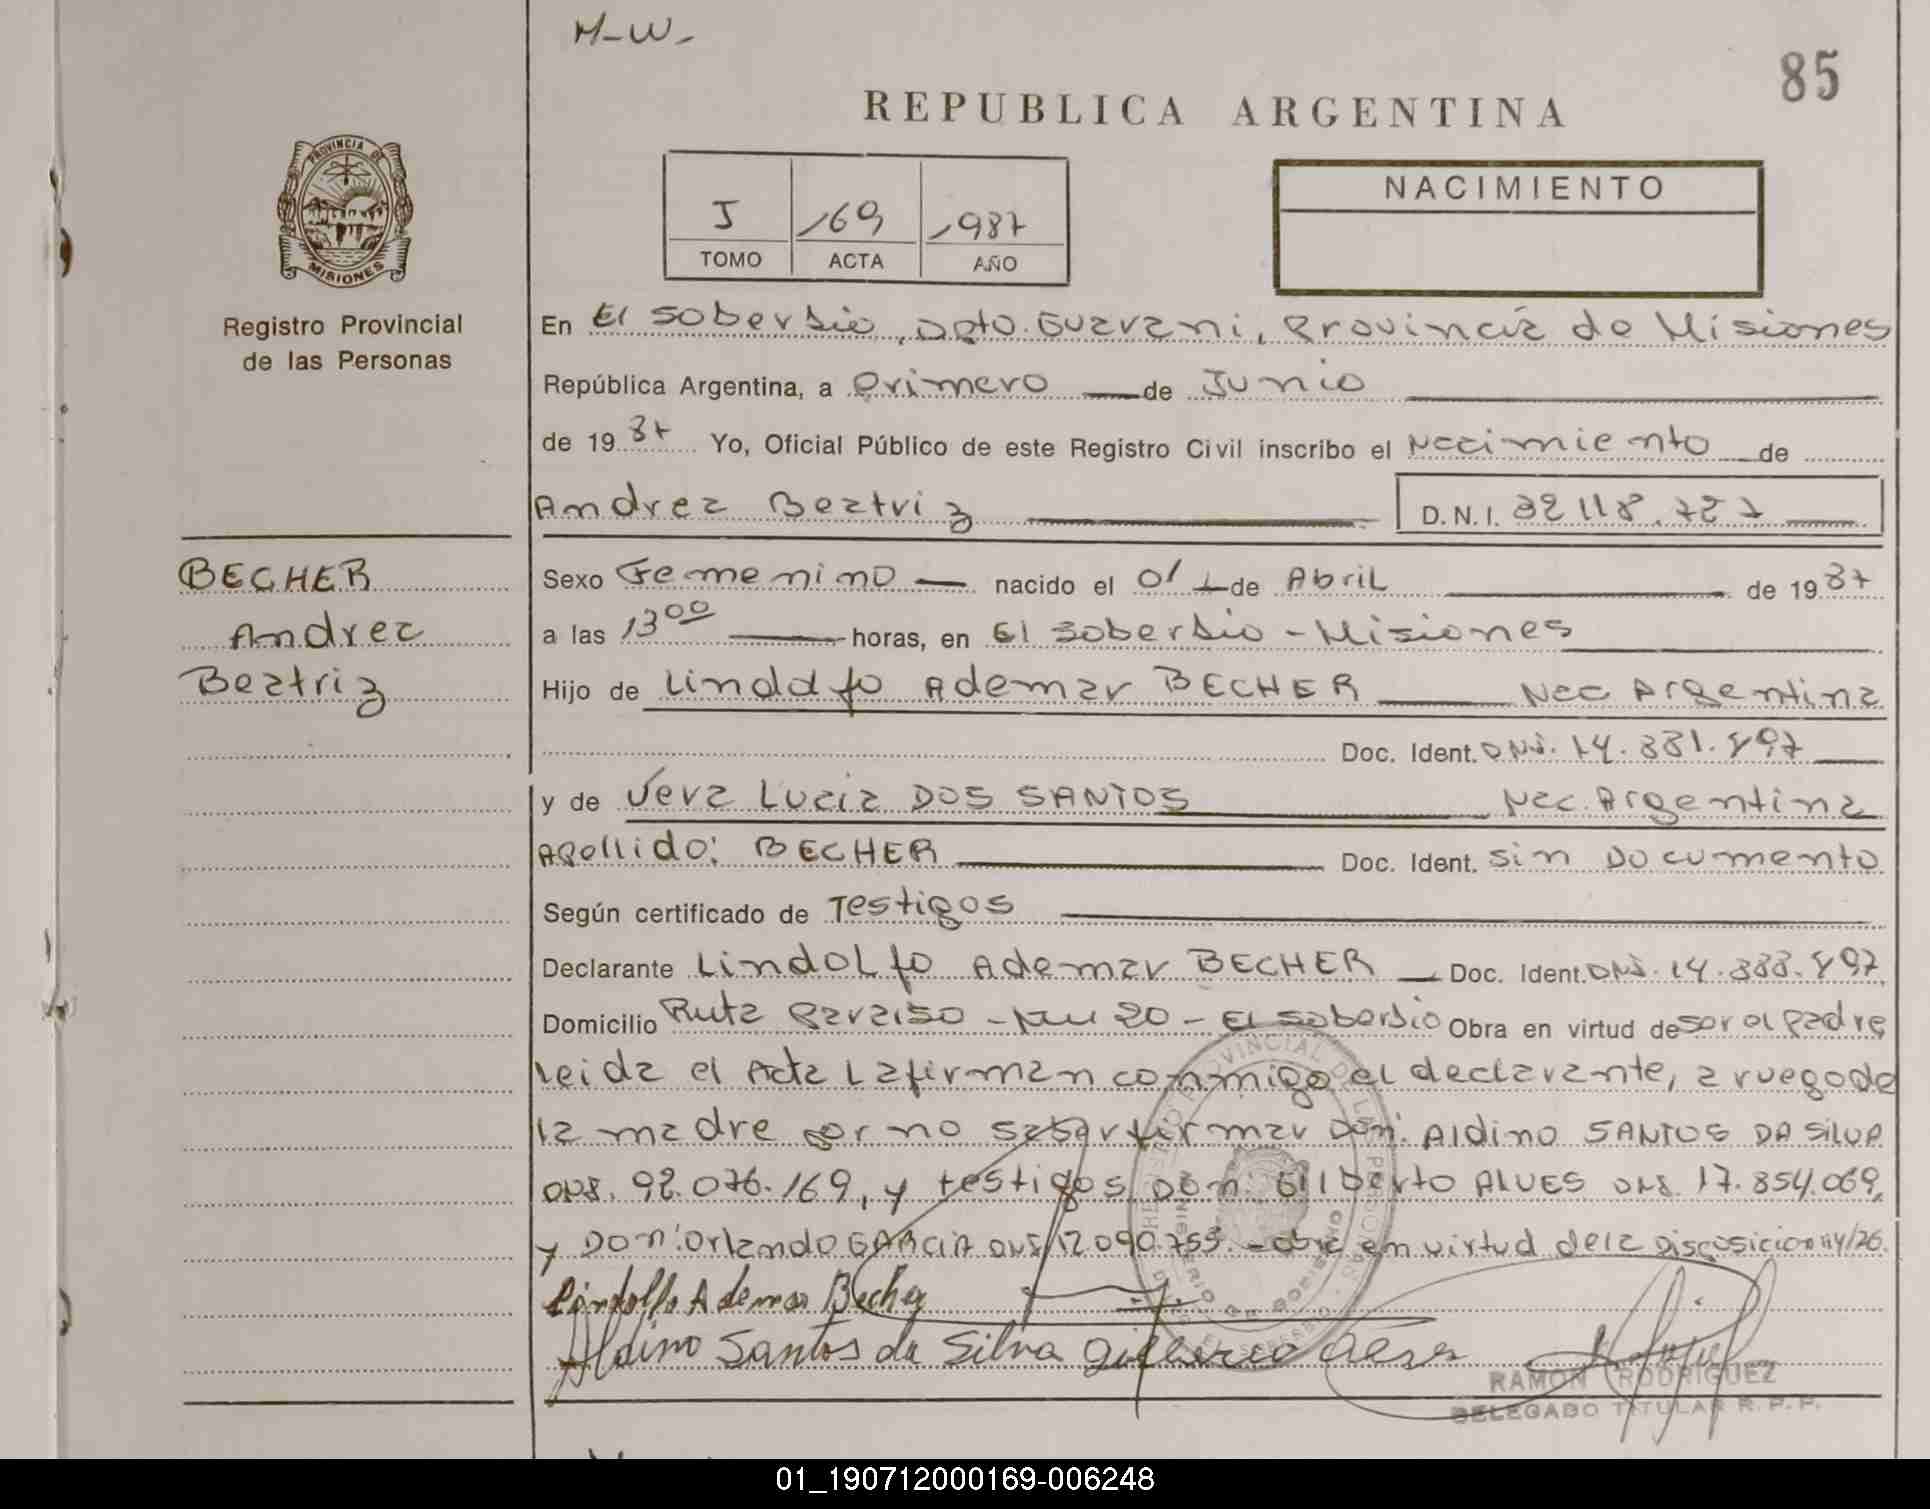 M-W-
85
REPUBLICA ARGENTINA
PROVINCIA DE
MISIONES
Registro Provincial
de las Personas
I 169 1987
TOMO ACTA AÑO
NACIMIENTO
En El Soberbio, Dpto. Guarani, Provincia de Misiones
República Argentina, a primero de Junio
de 1987 Yo, Oficial Público de este Registro Civil inscribo el Nacimiento de
Andrea Beatriz D.N.I. 32 118.727
BECHER
Andrea
Beatriz
Sexo Femenino nacido el 01 de Abril de 1987
a las 13 00 horas, en El Soberbio - Misiones
Hijo de Lindolfo Ademar BECHER Nac Argentina
Doc. Ident. DNI. 14.331.897
y de Vera Lucia DOS SANTOS Nac. Argentina
Apellido: BECHER Doc. Ident. sin Documento
Según certificado de Testigos
Declarante Lindolfo Ademar BECHER Doc. Ident. DNI. 14.333.897
Domicilio Ruta Paraiso - Km 20 - El Soberbio Obra en virtud de ser el padre
leida el Acta la firman conmigo el declarante, a ruego de
la madre por no saber firmar Don: Aldino SANTOS DA SILVA
DNI. 92.076.169, y testigos Don: Gilberto ALVES DNI. 17.854.069,
y Don: Orlando GARCIA DNI 12 090.753 - obra en virtud de la Disposicion 114/26.
Lindolfo Ademar Becher
Aldino Santos da Silva
RAMON RODRIGUEZ
DELEGADO TITULAR R.P.P.
01_190712000169-006248